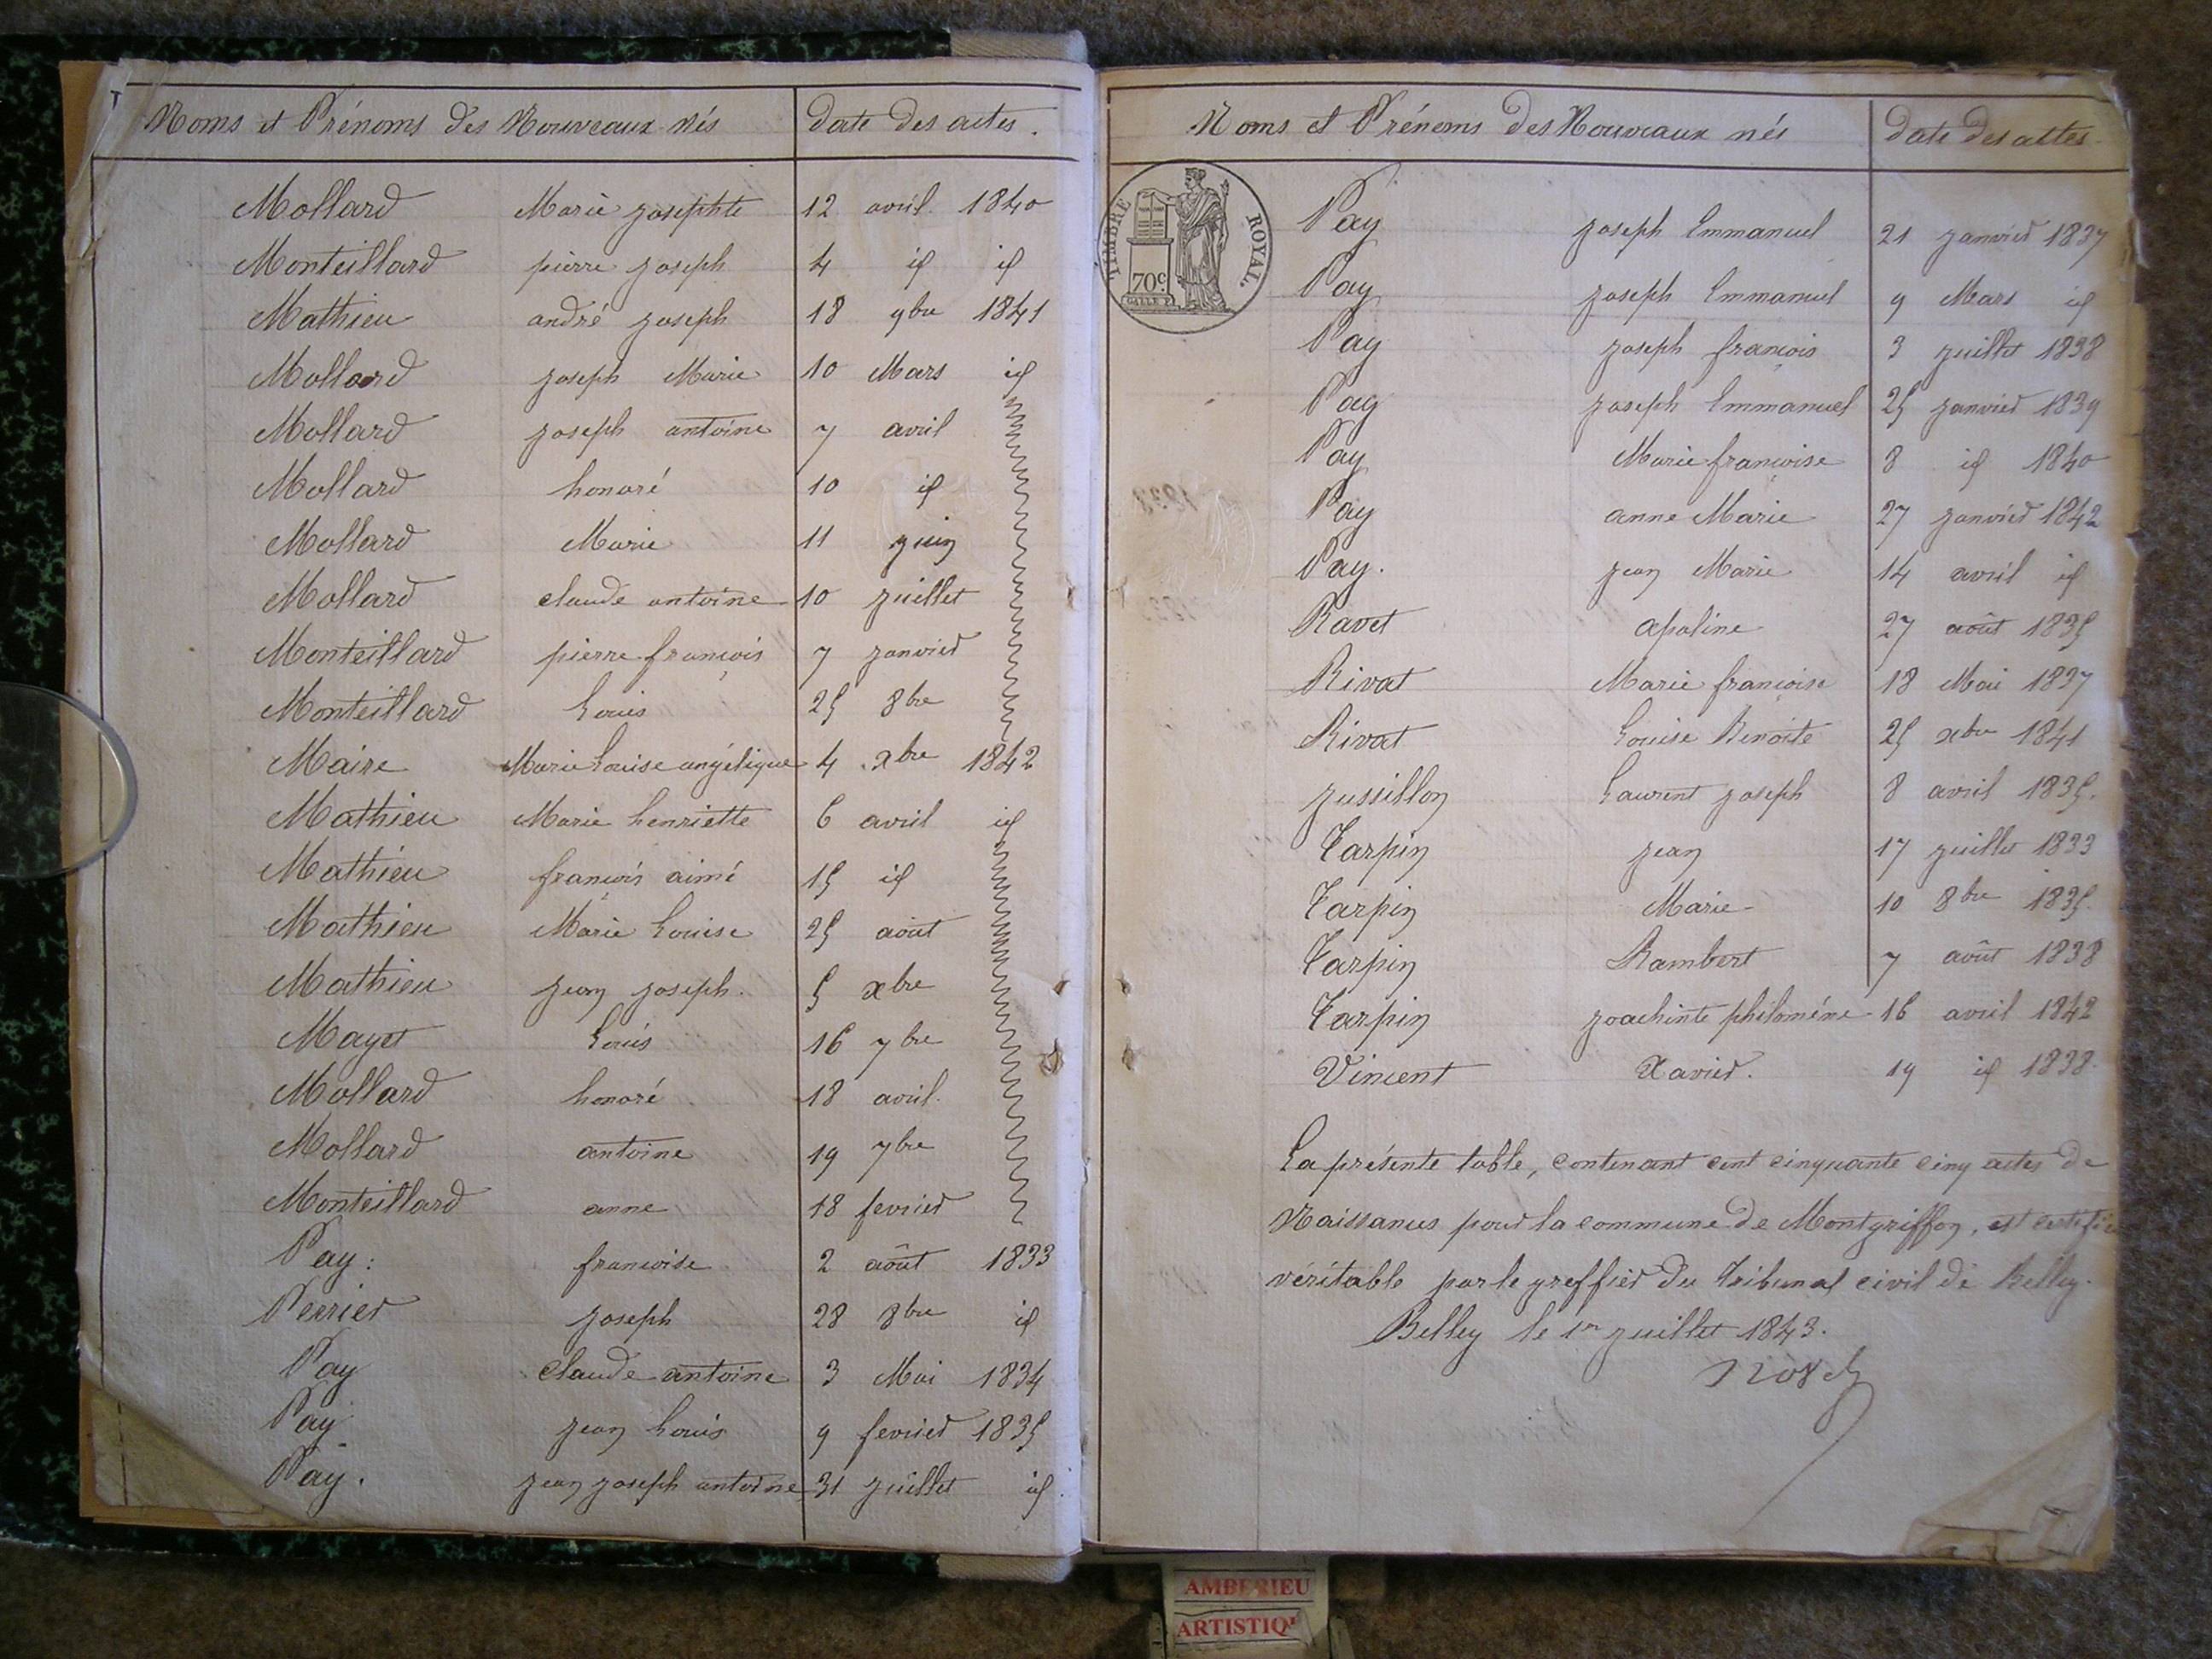 Noms et Prénoms des Nouveaux-nés Date des actes.
Mollard Marie josephte 12 avril 1840
Monteillard pierre joseph 4 id id
Mathieu andré joseph 18 9bre 1841
Mollard joseph Marie 10 Mars id
Mollard joseph antoine 7 avril
Mollard honoré 10 id
Mollard Marie 11 juin
Mollard claude antoine 10 juillet
Monteillard pierre françois 7 janvier
Monteillard Louis 25 8bre
Maire Marie Louise angélique 4 xbre 1842
Mathieu Marie henriette 6 avril id
Mathieu françois aimé 15 id
Mathieu Marie Louise 25 août
Mathieu jean joseph. 5 xbre
Mayet Louis 16 7bre
Mollard honoré 18 avril.
Mollard antoine 19 7bre
Monteillard anne 18 fevrier
Pay: francoise 2 août 1833
Perrier joseph 28 8bre id
Pay claude antoine 3 Mai 1834
Pay jean Louis 9 fevrier 1835
Pay. jean joseph antoine 31 juillet id.
Noms et Prénoms des Nouveaux nés Date des actes.
TIMBRE ROYAL.
70c.
Pay joseph Emmanuel 21 janvier 1837
Pay joseph Emmanuel 9 Mars id
Pay joseph françois 3 juillet 1838
Pay joseph Emmanuel 25 janvier 1839
Pay Marie francoise 8 id 1840
Pay anne Marie 27 janvier 1842
Pay. jean Marie 14 avril id
Ravet apoline 27 août 1835
Rivat Marie francoise 18 Mai 1837
Rivat Louise Benoite 25 xbre 1841
jussillon Laurent joseph 8 avril 1835.
Tarpin jean 17 juillet 1833
Tarpin Marie 10 8bre 1835
Tarpin Rambert 7 août 1838
Tarpin joachinte philoméne 16 avril 1842
Vincent Xavier. 19 id 1838.
La présente table, contenant cent cinquante cinq actes de
Naissances pour la commune de Montgriffon, est certifié
véritable par le greffier du Tribunal civil de Belley.
Belley le 1er juillet 1843.
AMBERIEU
ARTISTIQU